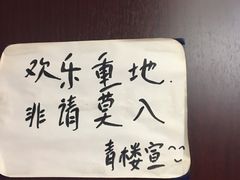 欢乐重地.
非请莫入
青楼宣